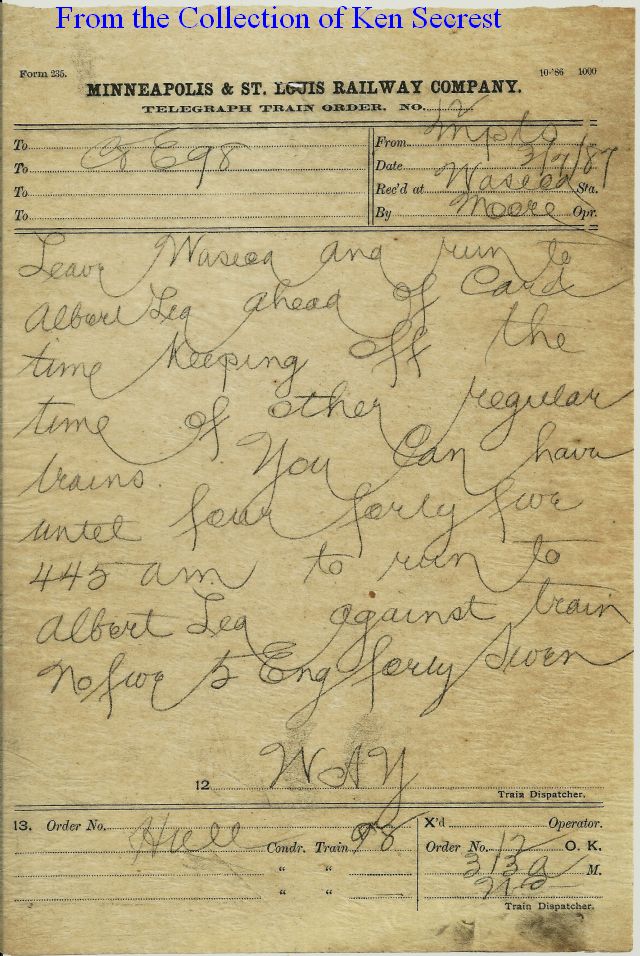 From the Collection of Ken Secrest
Form 235. 10-'86 1000
MINNEAPOLIS & ST. LOUIS RAILWAY COMPANY.
TELEGRAPH TRAIN ORDER. NO. 12
To C&E 98
To
To
To
From Mpls
Date 3/7/87
Rec'd at Waseca Sta.
By Moore Opr.
Leave Waseca and run to
Albert Lea ahead of Card
time keeping off the
time of other regular
trains. You can have
until four forty five
445 am. to run to
Albert Lea against train
No five 5 Eng forty seven
12 WAY
Train Dispatcher.
13. Order No. Hull Condr. Train 98
" "
" "
X'd Operator.
Order No. 12 O. K.
313a M.
Train Dispatcher.